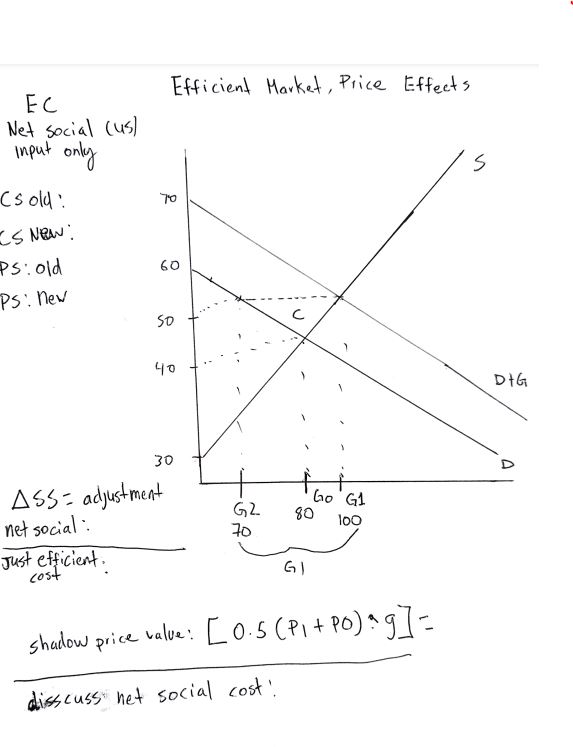 Efficient Market, Price Effects
EC
Net social (us)
input only
CS old:
CS New:
PS: old
PS: new
S
70
60
50
C
40
D+G
30
D
G2
G0
G1
70
80
100
G1
ΔSS = adjustment
net social:
Just efficient:
cost
shadow price value: [0.5 (P1 + P0) * g] =
disscuss net social cost: